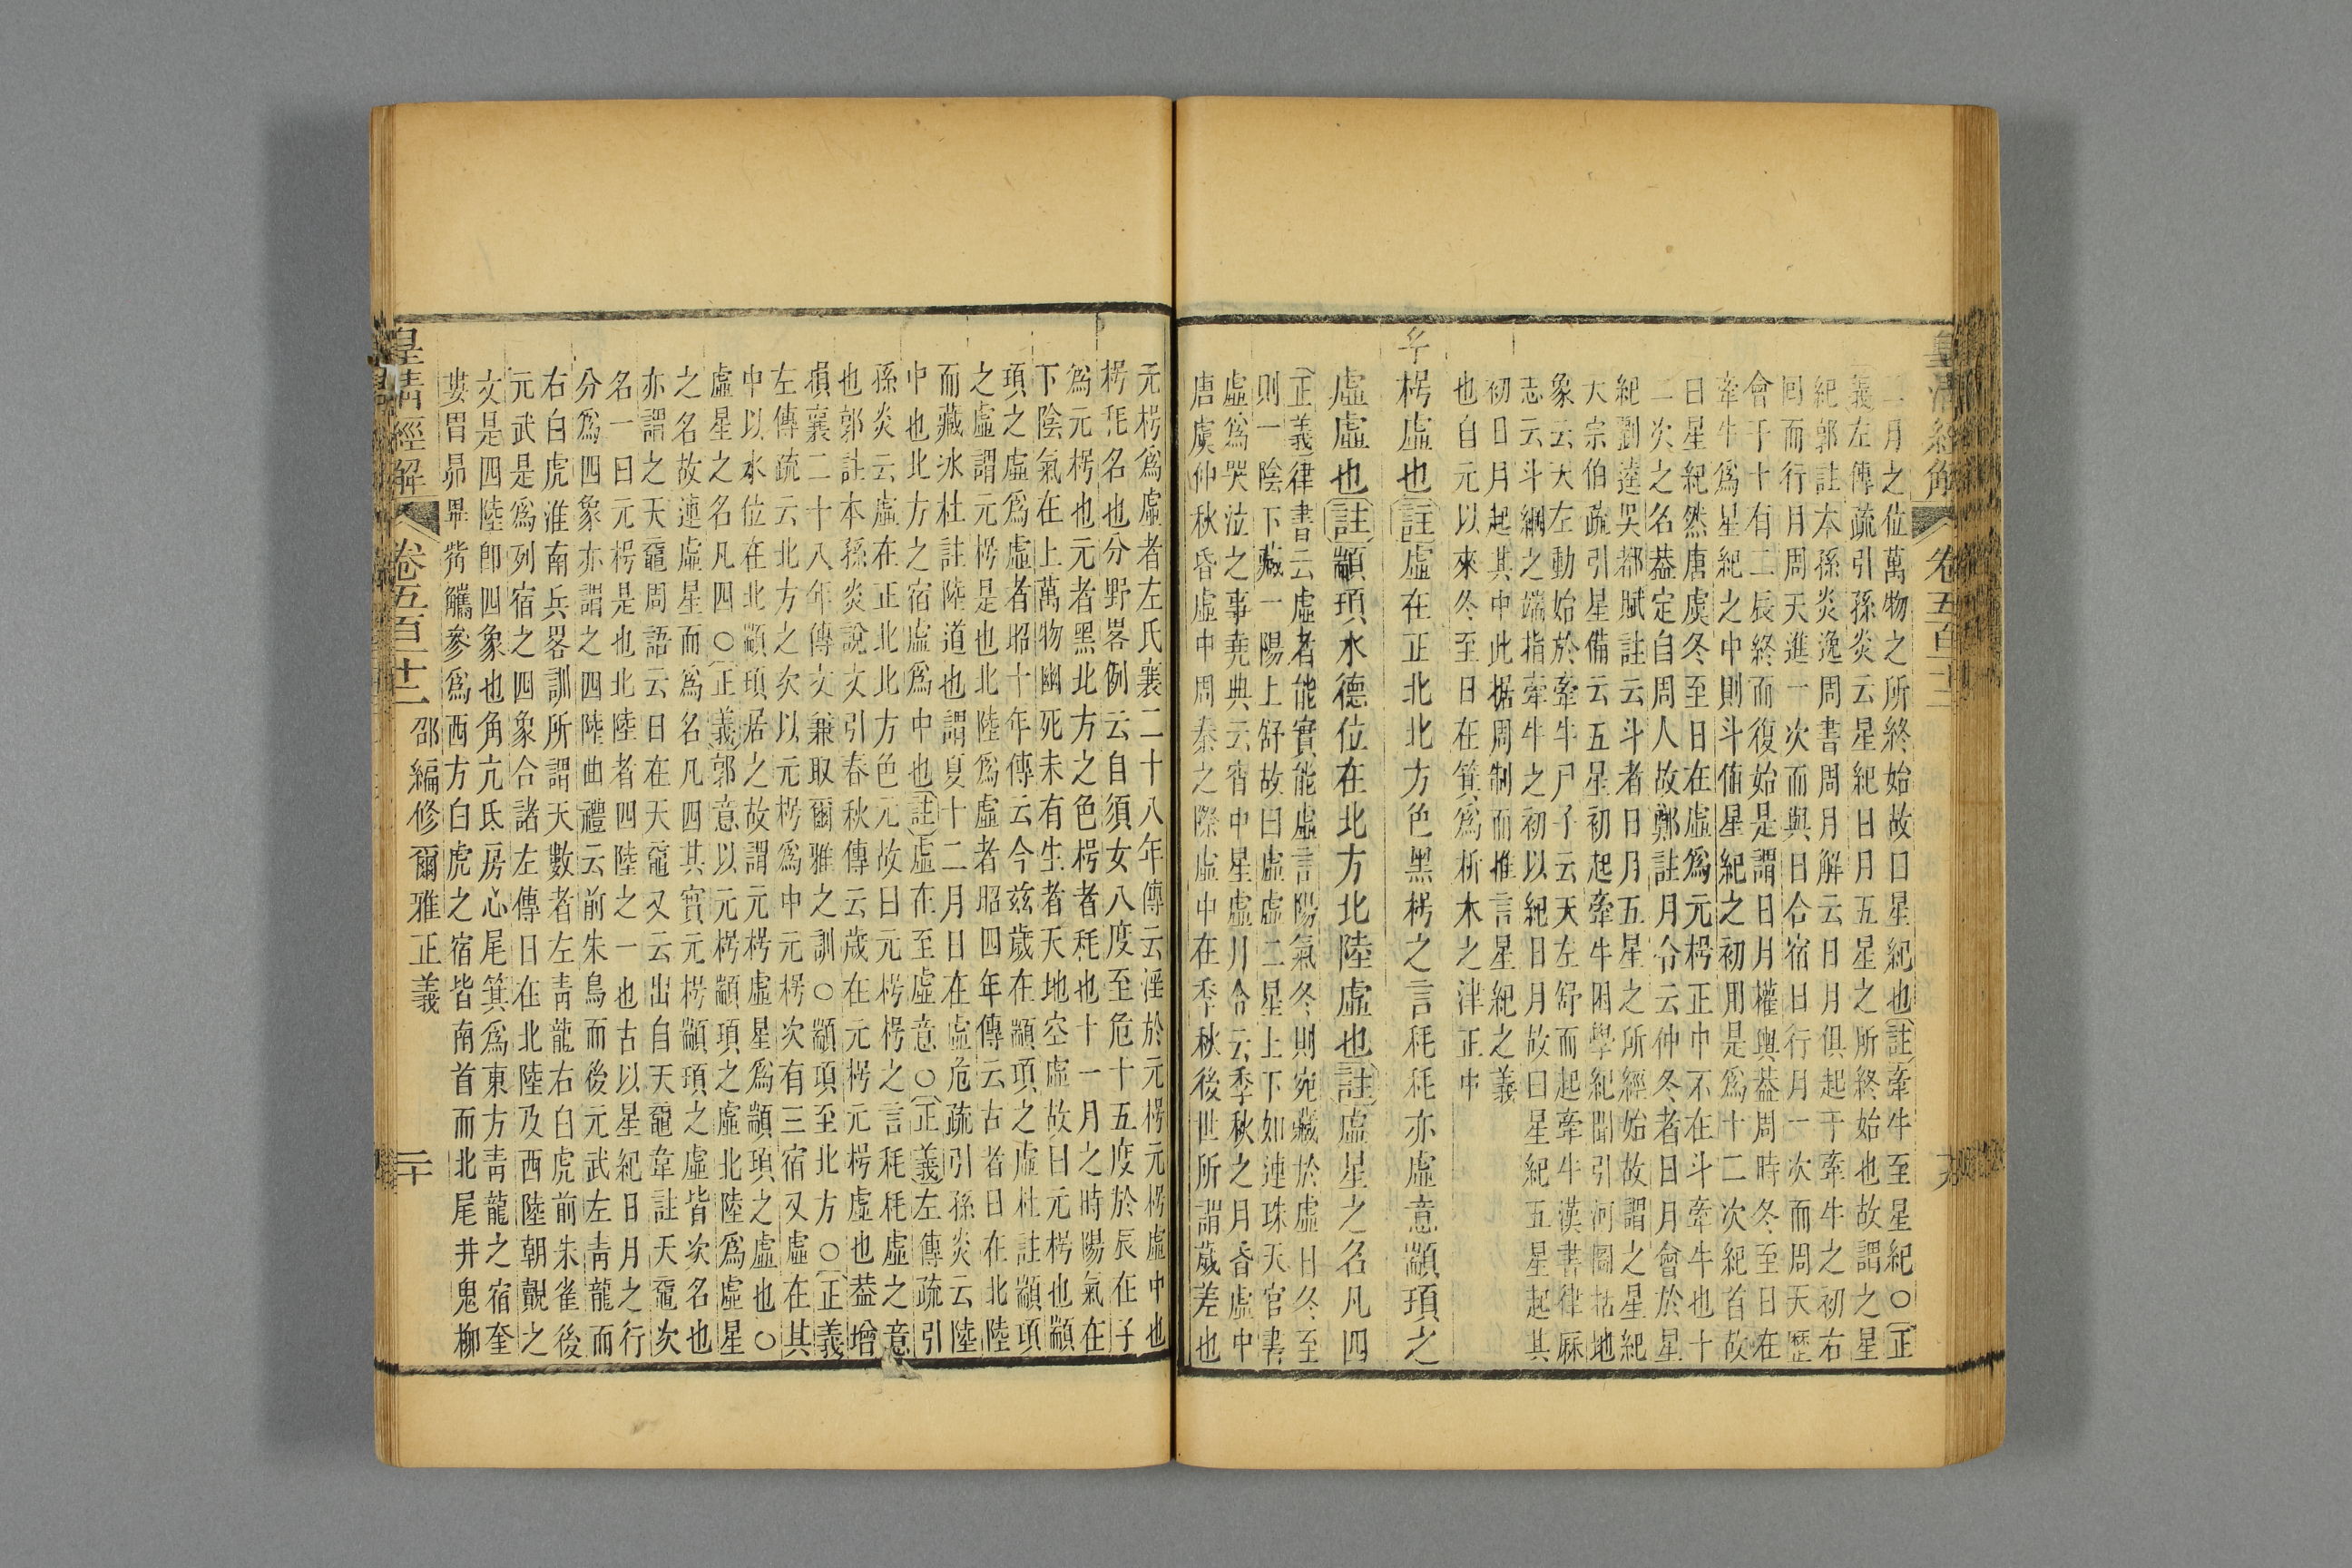 皇清經解 卷五百十二 九
二月之位萬物之所終始故曰星紀也註牽牛至星紀○正
義左傳疏引孫炎云星紀日月五星之所終始也故謂之星
紀郭註本孫炎逸周書周月解云日月俱起于牽牛之初右
回而行月周天進一次而與日合宿日行月一次而周天歷
會于十有二辰終而復始是謂日月權輿葢周時冬至日在
牽牛爲星紀之中則斗值星紀之初用是爲十二次紀首故
曰星紀然唐虞冬至日在虛爲元枵正中不在斗牽牛也十
二次之名葢定自周人故鄭註月令云仲冬者日月會於星
紀劉逵吳都賦註云斗者日月五星之所經始故謂之星紀
大宗伯疏引星備云五星初起牽牛困學紀聞引河圖括地
象云天左動始於牽牛尸子云天左舒而起牽牛漢書律厤
志云斗綱之端指牽牛之初以紀日月故曰星紀五星起其
初日月起其中此据周制而推言星紀之義
也自元以來冬至日在箕爲析木之津正中
枵虛也註虛在正北北方色黑枵之言秏秏亦虛意顓頊之
虛虛也註顓頊水德位在北方北陸虛也註虛星之名凡四
正義律書云虛者能實能虛言陽氣冬則宛藏於虛日冬至
則一陰下藏一陽上舒故曰虛虛二星上下如連珠天官書
虛爲哭泣之事堯典云宵中星虛月令云季秋之月昏虛中
唐虞仲秋昏虛中周秦之際虛中在季秋後世所謂歲差也
元枵爲虛者左氏襄二十八年傳云淫於元枵元枵虛中也
枵秏名也分野畧例云自須女八度至危十五度於辰在子
爲元枵也元者黑北方之色枵者秏也十一月之時陽氣在
下陰氣在上萬物幽死未有生者天地空虛故曰元枵也顓
頊之虛爲虛者昭十年傳云今玆歲在顓頊之虛杜註顓頊
之虛謂元枵是也北陸爲虛者昭四年傳云古者日在北陸
而藏冰杜註陸道也謂夏十二月日在虛危疏引孫炎云陸
中也北方之宿虛爲中也註虛在至虛意○正義左傳疏引
孫炎云虛在正北北方色元故曰元枵枵之言秏秏虛之意
也郭註本孫炎說文引春秋傳云歲在元枵元枵虛也葢增
損襄二十八年傳文兼取爾雅之訓○顓頊至北方○正義
左傳疏云北方之次以元枵爲中元枵次有三宿又虛在其
中以水位在北顓頊居之故謂元枵虛星爲顓頊之虛也○
虛星之名凡四○正義郭意以元枵顓頊之虛北陸爲虛星
之名故連虛星而爲名凡四其實元枵顓頊之虛皆次名也
亦謂之天黿周語云日在天黿又云出自天黿韋註天黿次
名一曰元枵是也北陸者四陸之一也古以星紀日月之行
分爲四象亦謂之四陸曲禮云前朱鳥而後元武左青龍而
右白虎淮南兵畧訓所謂天數者左青龍右白虎前朱雀後
元武是爲列宿之四象合諸左傳日在北陸及西陸朝覿之
文是四陸卽四象也角亢氐房心尾箕爲東方青龍之宿奎
婁胃昴畢觜觿參爲西方白虎之宿皆南首而北尾井鬼柳
皇清經解 卷五百十二 邵編修爾雅正義 二十